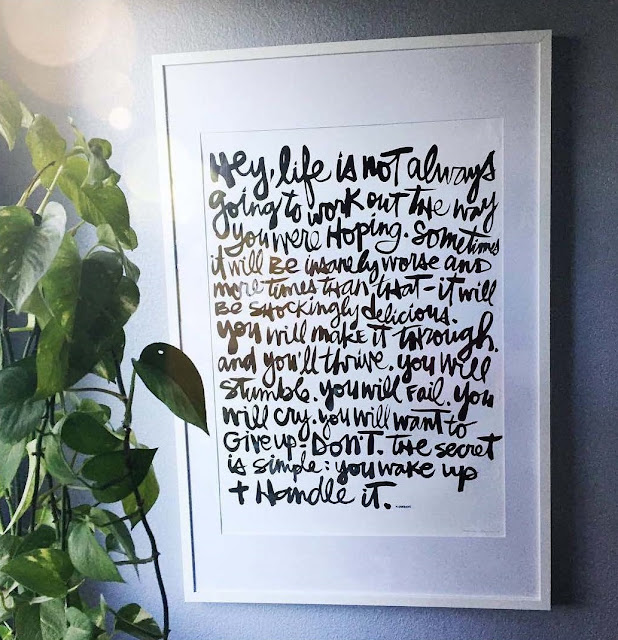 Hey, life is not always
going to work out the way
you were hoping. sometimes
it will BE insanely worse and
more times than that - it will
BE shockingly delicious.
you will make it through.
and you'll thrive. you will
stumble. you will fail. you
will cry. you will want to
Give up. Don't. the secret
is simple: you wake up
+ Handle it.